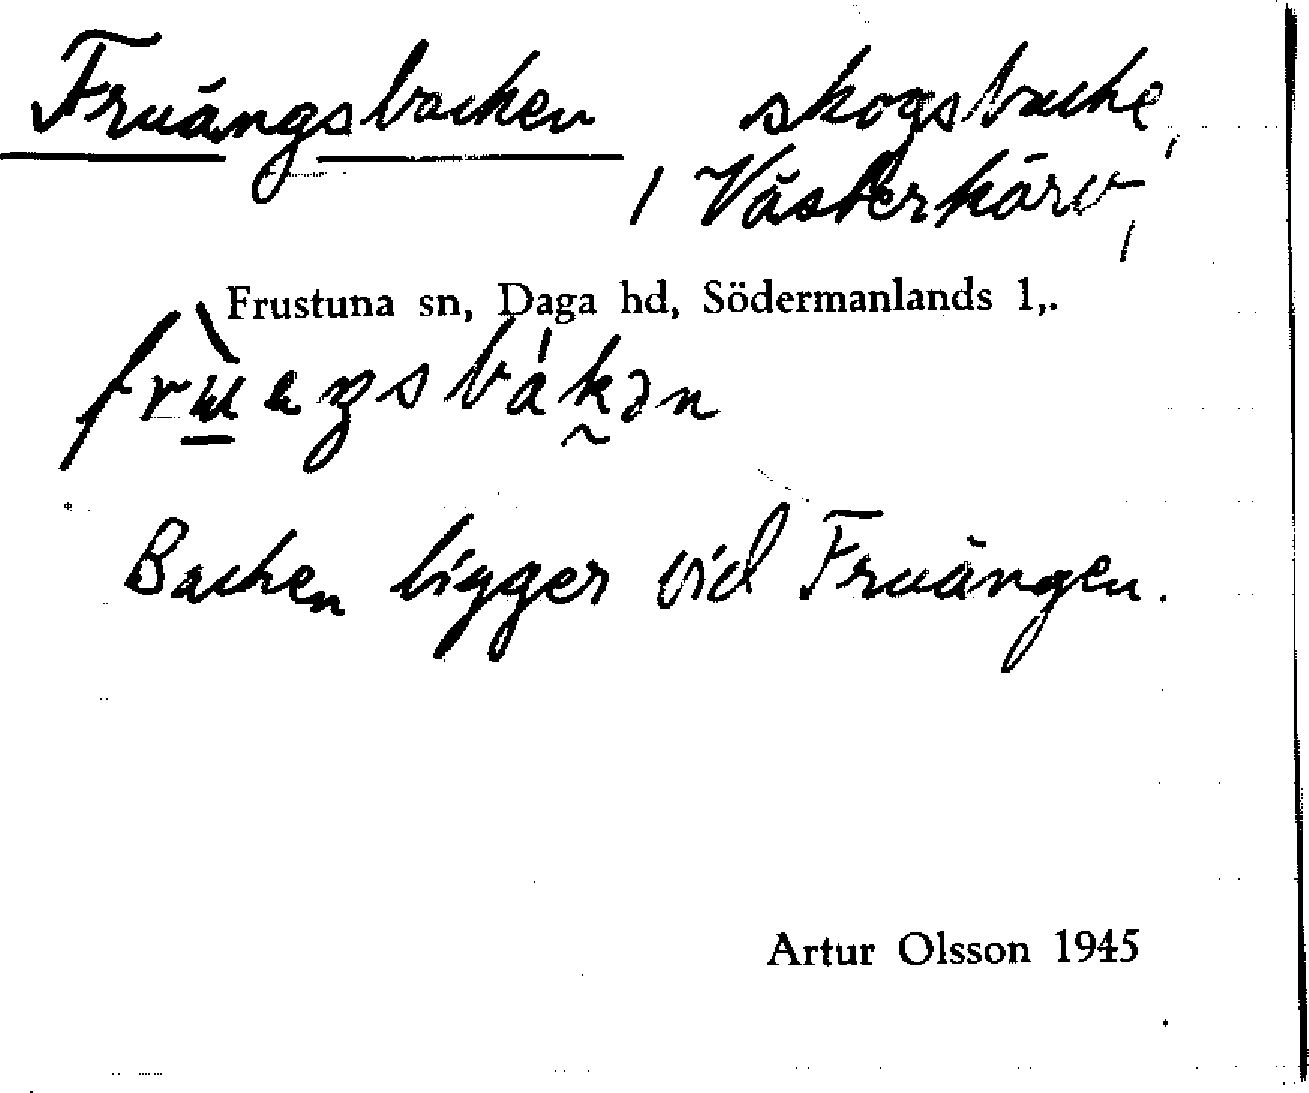 Fruängsbacken skogsbacke,
i Västerkärv,
Frustuna sn, Daga hd, Södermanlands l,.
Backen ligger vid Fruängen.
Artur Olsson 1945